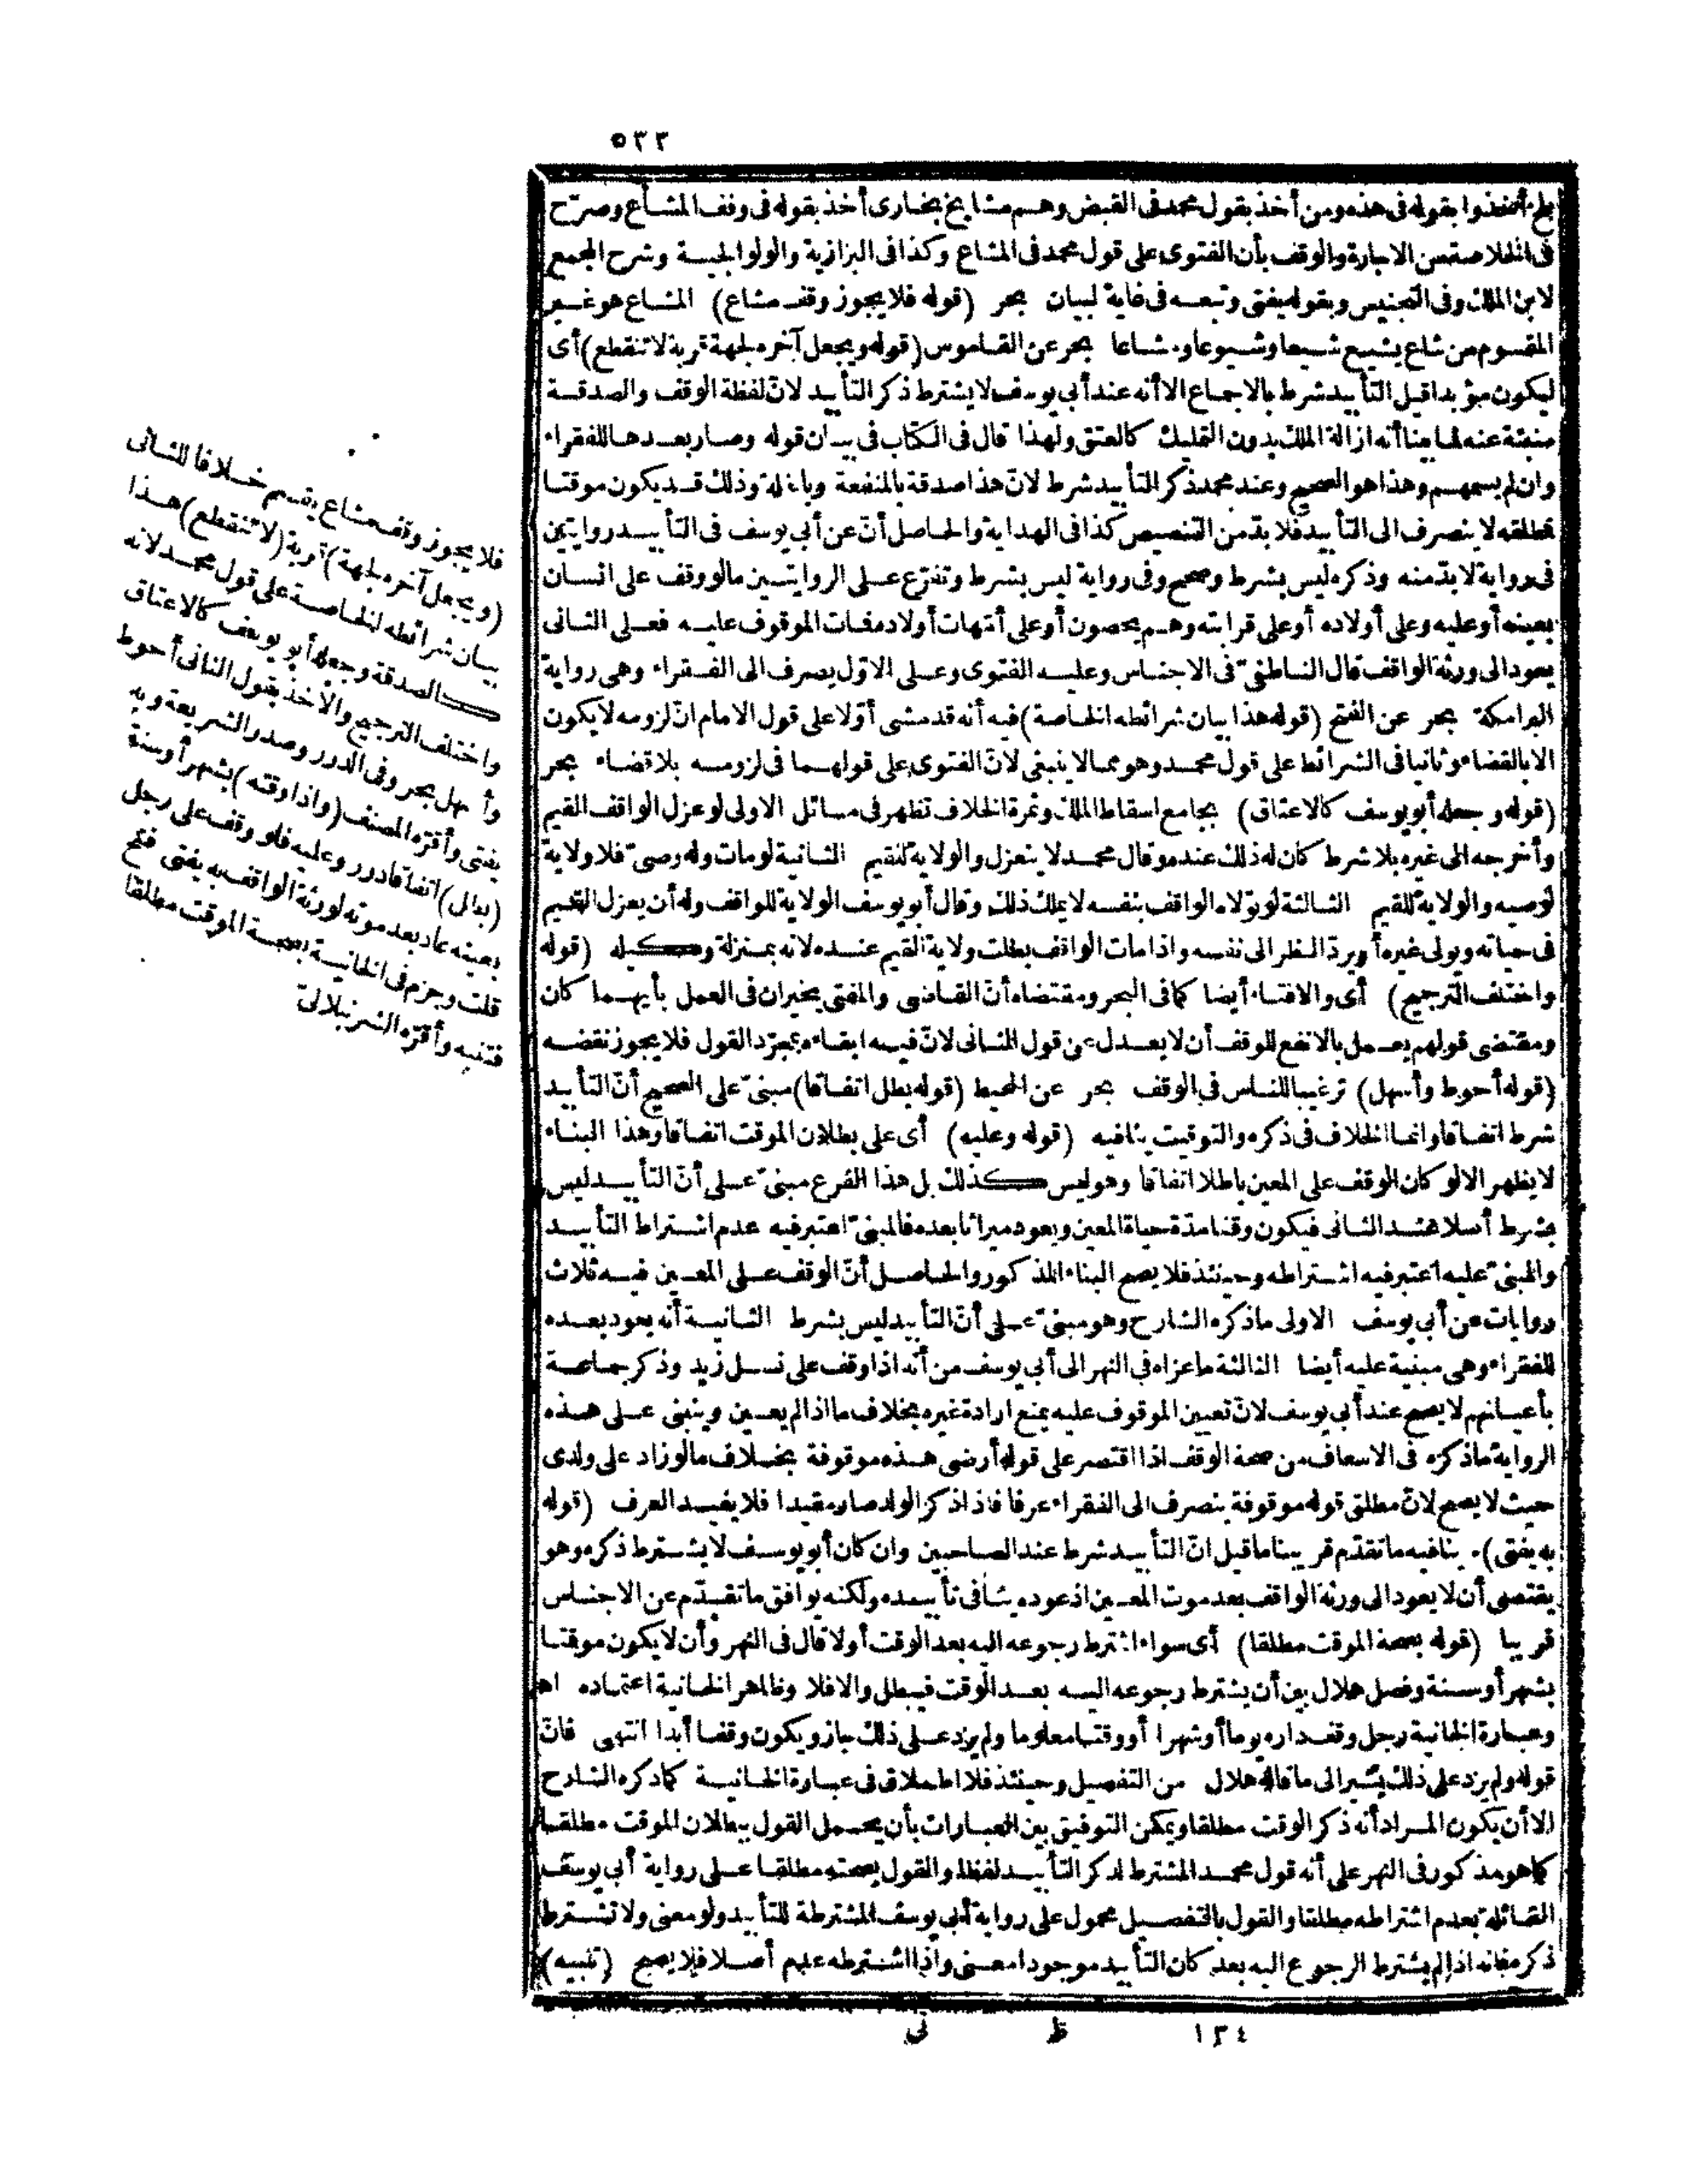 ٥٣٣
بلخ أخذوا بقوله فى هذه ومن أخذ بقول محمد فى القبض وهم مشايخ بخارى أخذ بقوله فى وقف المشاع وصرّح
فى الخلاصة من الاجارة والوقف بأن الفتوى على قول محمد فى المشاع وكذا فى البزازية والولوالجية وشرح المجمع
لابن الملك وفى التجنيس وبقوله يفتى وتبعه فى غاية لبيان بحر (قوله فلا يجوز وقف مشاع) المشاع هو غير
المقسوم من شاع يشيع شيعا وشيوعا ومشاعا بحر عن القاموس (قوله ويجعل آخره لجهة قربة لا تنقطع) أى
ليكون مؤبدا قيل التأبيد شرط بالاجماع الا أنه عند أبى يوسف لا يشترط ذكر التأبيد لانّ لفظة الوقف والصدقة
منبئة عنه لما بينا أنه ازالة الملك بدون التمليك كالعتق ولهذا قال فى الكتاب فى بيان قوله وصار بعدها للفقراء
وان لم يسمهم وهذا هو الصحيح وعند محمد ذكر التأبيد شرط لانّ هذا صدقة بالمنفعة وبالغلة وذلك قد يكون موقتا
فمطلقه لا ينصرف الى التأبيد فلا بدّ من التنصيص كذا فى الهداية والحاصل أنّ عن أبى يوسف فى التأبيد روايتين
فى رواية لا بدّ منه وذكره ليس بشرط وصحح وفى رواية ليس بشرط وتفرّع على الروايتين ما لو وقف على انسان
بعينه أو عليه وعلى أولاده أو على قرابته وهم يحصون أو على أمّهات أولاده فمات الموقوف عليه فعلى الثانى
يعود الى ورثة الواقف قال الناطفىّ فى الاجناس وعليه الفتوى وعلى الاوّل يصرف الى الفقراء وهى رواية
البرامكة بحر عن الفتح (قوله هذا بيان شرائطه الخاصة) فيه أنه قد مشى أوّلا على قول الامام انّ لزومه لا يكون
الا بالقضاء وثانيا فى الشرائط على قول محمد وهو مما لا ينبغى لانّ الفتوى على قولهما فى لزومه بلا قضاء بحر
(قوله وجعله أبو يوسف كالاعتاق) بجامع اسقاط الملك وثمرة الخلاف تظهر فى مسائل الاولى لو عزل الواقف القيم
وأخرجه الى غيره بلا شرط كان له ذلك عنده وقال محمد لا ينعزل والولاية للقيم الثانية لو مات وله وصىّ فلا ولاية
لوصيه والولاية للقيم الثالثة لو تولاه الواقف بنفسه لا يملك ذلك وقال أبو يوسف الولاية للواقف وله أن يعزل القيم
فى حياته ويولى غيره أو يردّ النظر الى نفسه واذا مات الواقف بطلت ولاية القيم عنده لانه بمنزلة وكيله (قوله
واختلف الترجيح) أى والافتاء أيضا كما فى البحر ومقتضاه أنّ القاضى والمفتى يخيران فى العمل بأيهما كان
ومقتضى قولهم يعمل بالانفع للوقف أن لا يعدل عن قول الثانى لانّ فيه ابقاءه بمجرّد القول فلا يجوز نقضه
(قوله أحوط وأسهل) ترغيبا للناس فى الوقف بحر عن المحيط (قوله بطل اتفاقا) مبنىّ على الصحيح أنّ التأبيد
شرط اتفاقا وانما الخلاف فى ذكره والتوقيت ينافيه (قوله وعليه) أى على بطلان الموقت اتفاقا وهذا البناء
لا يظهر الا لو كان الوقف على المعين باطلا اتفاقا وهو ليس كذلك بل هذا الفرع مبنىّ على أنّ التأبيد ليس
بشرط أصلا عند الثانى فيكون وقفا مدّة حياة المعين ويعود ميراثا بعده فالمبنىّ اعتبر فيه عدم اشتراط التأبيد
والمبنىّ عليه اعتبر فيه اشتراطه وحينئذ فلا يصح البناء المذكور والحاصل أنّ الوقف على المعين فيه ثلاث
روايات عن أبى يوسف الاولى ما ذكره الشارح وهو مبنىّ على أنّ التأبيد ليس بشرط الثانية أنه يعود بعده
للفقراء وهى مبنية عليه أيضا الثالثة ما عزاه فى النهر الى أبى يوسف من أنه اذا وقف على نسل زيد وذكر جماعة
بأعيانهم لا يصح عند أبى يوسف لانّ تعيين الموقوف عليه يمنع ارادة غيره بخلاف ما اذا لم يعين وينبنى على هذه
الرواية ما ذكره فى الاسعاف من صحة الوقف اذا اقتصر على قوله أرضى هذه موقوفة بخلاف ما لو زاد على ولدى
حيث لا يصح لانّ مطلق قوله موقوفة ينصرف الى الفقراء عرفا فاذا ذكر الولد صار مقيدا فلا يفيد العرف (قوله
به يفتى) ينافيه ما تقدّم قريبا ما قيل انّ التأبيد شرط عند الصاحبين وان كان أبو يوسف لا يشترط ذكره وهو
يقتضى أن لا يعود الى ورثة الواقف بعد موت المعين اذ عوده ينافى تأبيده ولكنه يوافق ما تقدّم عن الاجناس
قريبا (قوله بصحة الموقت مطلقا) أى سواء اشترط رجوعه اليه بعد الوقت أو لا قال فى النهر وأن لا يكون موقتا
بشهر أو سنة وفصل هلال بين أن يشترط رجوعه اليه بعد الوقت فيبطل والا فلا وظاهر الخانية اعتماده اهـ
وعبارة الخانية رجل وقف داره يوما أو شهرا أو وقتا معلوما ولم يزد على ذلك جاز ويكون وقفا أبدا انتهى فانّ
قوله ولم يزد على ذلك يشير الى ما قاله هلال من التفصيل وحينئذ فلا اطلاق فى عبارة الخانية كما ذكره الشارح
الا أن يكون المراد أنه ذكر الوقت مطلقا ويمكن التوفيق بين العبارات بأن يحمل القول ببطلان الموقت مطلقا
كما هو مذكور فى النهر على أنه قول محمد المشترط لذكر التأبيد لفظا والقول بصحته مطلقا على رواية أبى يوسف
القائلة بعدم اشتراطه مطلقا والقول بالتفصيل محمول على رواية أبى يوسف المشترطة للتأبيد ولو معنى ولا تشترط
ذكره فانه اذا لم يشترط الرجوع اليه بعد كان التأبيد موجودا معنى واذا اشترطه عدم أصلا فلا يصح (تنبيه)
فلا يجوز وقف مشاع يقسم خلافا للثانى
(ويجعل آخره لجهة) قربة (لا تنقطع) هذا
بيان شرائطه الخاصة على قول محمد لانه
كالصدقة وجعله أبو يوسف كالاعتاق
واختلف الترجيح والاخذ بقول الثانى أحوط
وأسهل بحر وفى الدرر وصدر الشريعة وبه
يفتى وأقرّه المصنف (واذا وقته) بشهر أو سنة
(بطل) اتفاقا درر وعليه فلو وقف على رجل
بعينه عاد بعد موته لورثة الواقف به يفتى فتح
قلت وجزم فى الخانية بصحة الموقت مطلقا
فتنبه وأقرّه الشرنبلالىّ
١٣٤ ط نى